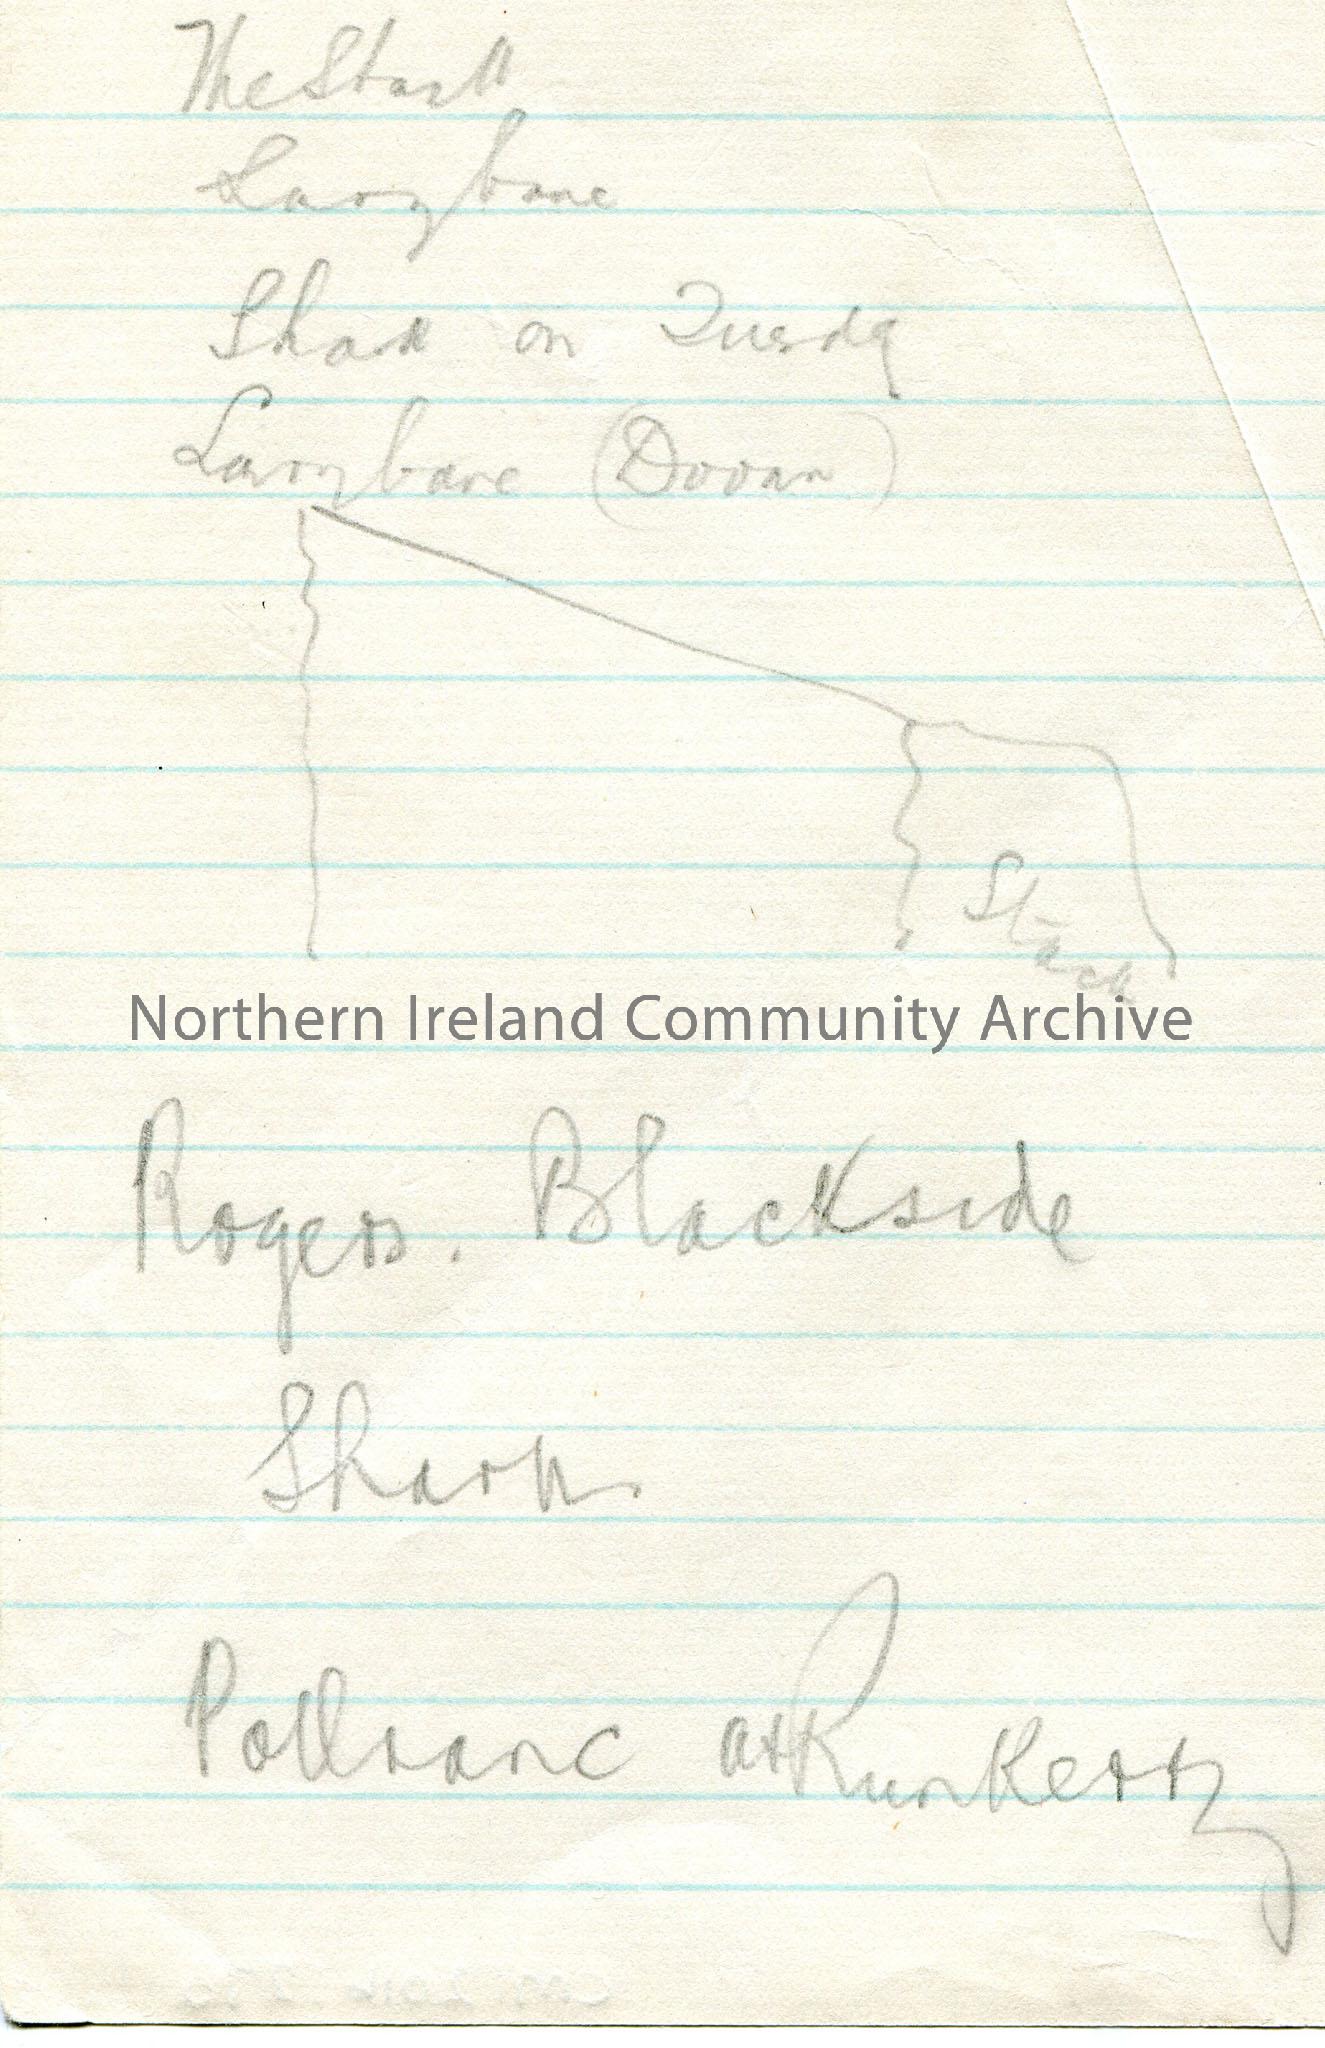 The Stack
Larrybane
Shark on Tuesdy
Larrybane (Dooan)
Stack
Northern Ireland Community Archive
Rogers. Blackside
Shark.
Pollnanc at Runkerry